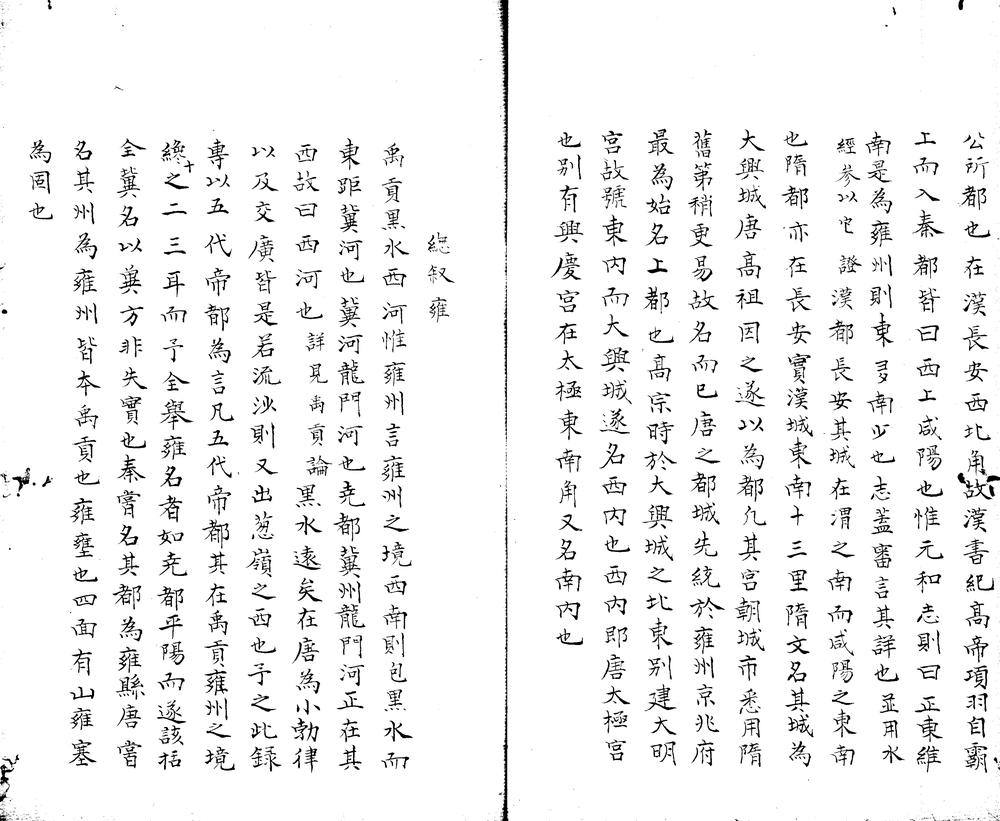 公所都也在漢長安西北角故漢書紀高帝項羽自霸
上而入秦都皆曰西上咸陽也惟元和志則曰正東維
南是為雍州則東多南少也志蓋審言其詳也並用水
經參以它證漢都長安其城在渭之南而咸陽之東南
也隋都亦在長安實漢城東南十三里隋文名其城為
大興城唐高祖因之遂以為都凡其宮朝城市悉用隋
舊第稍更易故名而已唐之都城先統於雍州京兆府
最為始名上都也高宗時於大興城之北東别建大明
宮故號東内而大興城遂名西内也西内即唐太極宮
也别有興慶宮在太極東南角又名南内也
總叙雍
禹貢黒水西河惟雍州言雍州之境西南則包黒水而
東距冀河也冀河龍門河也堯都冀州龍門河正在其
西故曰西河也詳見禹貢論黒水逺矣在唐為小勃律
以及交廣皆是若流沙則又出葱嶺之西也予之此録
專以五代帝都為言凡五代帝都其在禹貢雍州之境
纔十之二三耳而予全舉雍名者如堯都平陽而遂該括
全冀名以冀方非失實也秦嘗名其都為雍縣唐嘗
名其州為雍州皆本禹貢也雍壅也四面有山雍塞
為固也